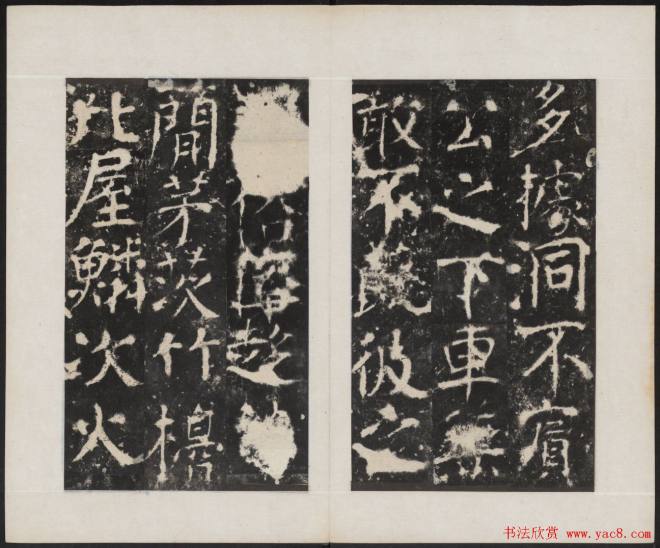 多據洞不賓
公之下車無
敢不彼之
俗
間茅茨竹
比屋鱗次火
书法欣赏 www.yac8.com